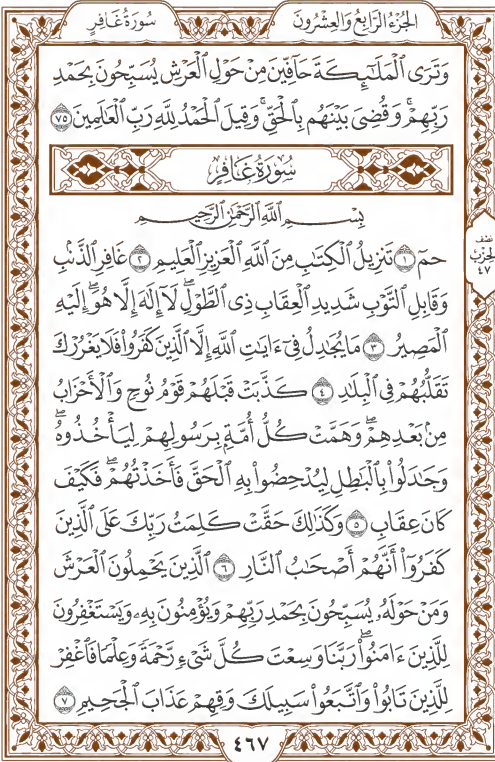 الجُزْءُ الرَّابِعُ وَالعِشْرُونَ
سُورَةُ غَافِرٍ
وَتَرَى ٱلْمَلَـٰٓئِكَةَ حَآفِّينَ مِنْ حَوْلِ ٱلْعَرْشِ يُسَبِّحُونَ بِحَمْدِ
رَبِّهِمْ ۖ وَقُضِىَ بَيْنَهُم بِٱلْحَقِّ وَقِيلَ ٱلْحَمْدُ لِلَّهِ رَبِّ ٱلْعَـٰلَمِينَ ٧٥
سُورَةُ غَافِرٍ
بِسْمِ ٱللَّهِ ٱلرَّحْمَـٰنِ ٱلرَّحِيمِ
حمٓ ١ تَنزِيلُ ٱلْكِتَـٰبِ مِنَ ٱللَّهِ ٱلْعَزِيزِ ٱلْعَلِيمِ ٢ غَافِرِ ٱلذَّنۢبِ
وَقَابِلِ ٱلتَّوْبِ شَدِيدِ ٱلْعِقَابِ ذِى ٱلطَّوْلِ ۖ لَآ إِلَـٰهَ إِلَّا هُوَ ۖ إِلَيْهِ
ٱلْمَصِيرُ ٣ مَا يُجَـٰدِلُ فِىٓ ءَايَـٰتِ ٱللَّهِ إِلَّا ٱلَّذِينَ كَفَرُوا۟ فَلَا يَغْرُرْكَ
تَقَلُّبُهُمْ فِى ٱلْبِلَـٰدِ ٤ كَذَّبَتْ قَبْلَهُمْ قَوْمُ نُوحٍ وَٱلْأَحْزَابُ
مِنۢ بَعْدِهِمْ ۖ وَهَمَّتْ كُلُّ أُمَّةٍۭ بِرَسُولِهِمْ لِيَأْخُذُوهُ ۖ
وَجَـٰدَلُوا۟ بِٱلْبَـٰطِلِ لِيُدْحِضُوا۟ بِهِ ٱلْحَقَّ فَأَخَذْتُهُمْ ۖ فَكَيْفَ
كَانَ عِقَابِ ٥ وَكَذَٰلِكَ حَقَّتْ كَلِمَتُ رَبِّكَ عَلَى ٱلَّذِينَ
كَفَرُوٓا۟ أَنَّهُمْ أَصْحَـٰبُ ٱلنَّارِ ٦ ٱلَّذِينَ يَحْمِلُونَ ٱلْعَرْشَ
وَمَنْ حَوْلَهُۥ يُسَبِّحُونَ بِحَمْدِ رَبِّهِمْ وَيُؤْمِنُونَ بِهِۦ وَيَسْتَغْفِرُونَ
لِلَّذِينَ ءَامَنُوا۟ ۖ رَبَّنَا وَسِعْتَ كُلَّ شَىْءٍ رَّحْمَةً وَعِلْمًا فَٱغْفِرْ
لِلَّذِينَ تَابُوا۟ وَٱتَّبَعُوا۟ سَبِيلَكَ وَقِهِمْ عَذَابَ ٱلْجَحِيمِ ٧
نصف
الحزب
٤٧
٤٦٧